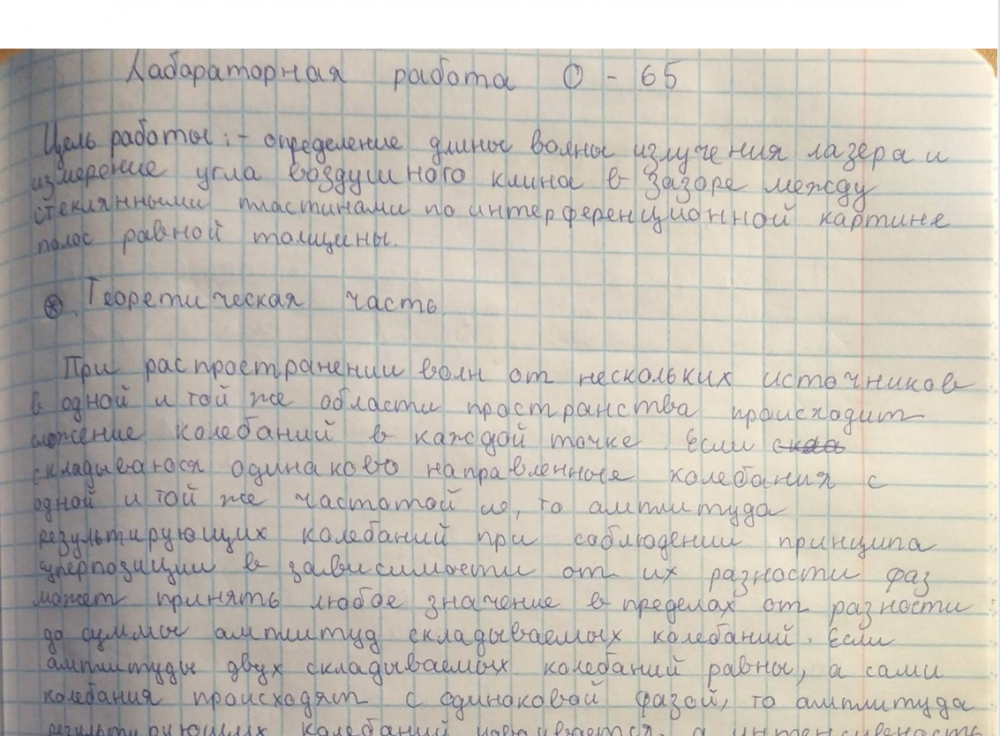 Лабараторная работа О - 65
Цель работы: - определение длины волны излучения лазера и
измерение угла воздушного клина в зазоре между
стеклянными пластинами по интерференционной картине
полос равной толщины.
⊗. Теоретическая часть
При распространении волн от нескольких источников
в одной и той же области пространства происходит
сложение колебаний в каждой точке. Если
складываюся одинаково направленные колебания с
одной и той же частотой ω, то амплитуда
результирующих колебаний при соблюдении принципа
суперпозиции в зависимости от их разности фаз
может принять любое значение в пределах от разности
до суммы амплитуд складываемых колебаний. Если
амплитуды двух складываемых колебаний равны, а сами
колебания происходят с одинаковой фазой, то амплитуда
результирующих колебаний а интенсивность